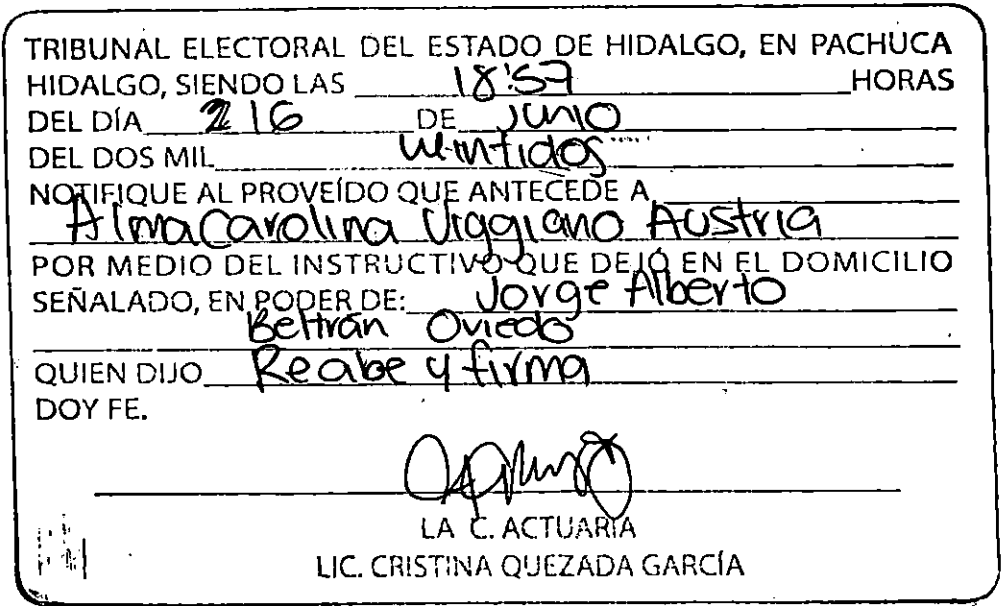 TRIBUNAL ELECTORAL DEL ESTADO DE HIDALGO, EN PACHUCA
HIDALGO, SIENDO LAS 18:57 HORAS
DEL DÍA 16 DE junio
DEL DOS MIL veintidos
NOTIFIQUE AL PROVEÍDO QUE ANTECEDE A
Alma Carolina Viggiano Austria
POR MEDIO DEL INSTRUCTIVO QUE DEJÓ EN EL DOMICILIO
SEÑALADO, EN PODER DE: Jorge Alberto
Beltrán Oviedo
QUIEN DIJO Reabe y firma
DOY FE.
LA C. ACTUARIA
LIC. CRISTINA QUEZADA GARCÍA